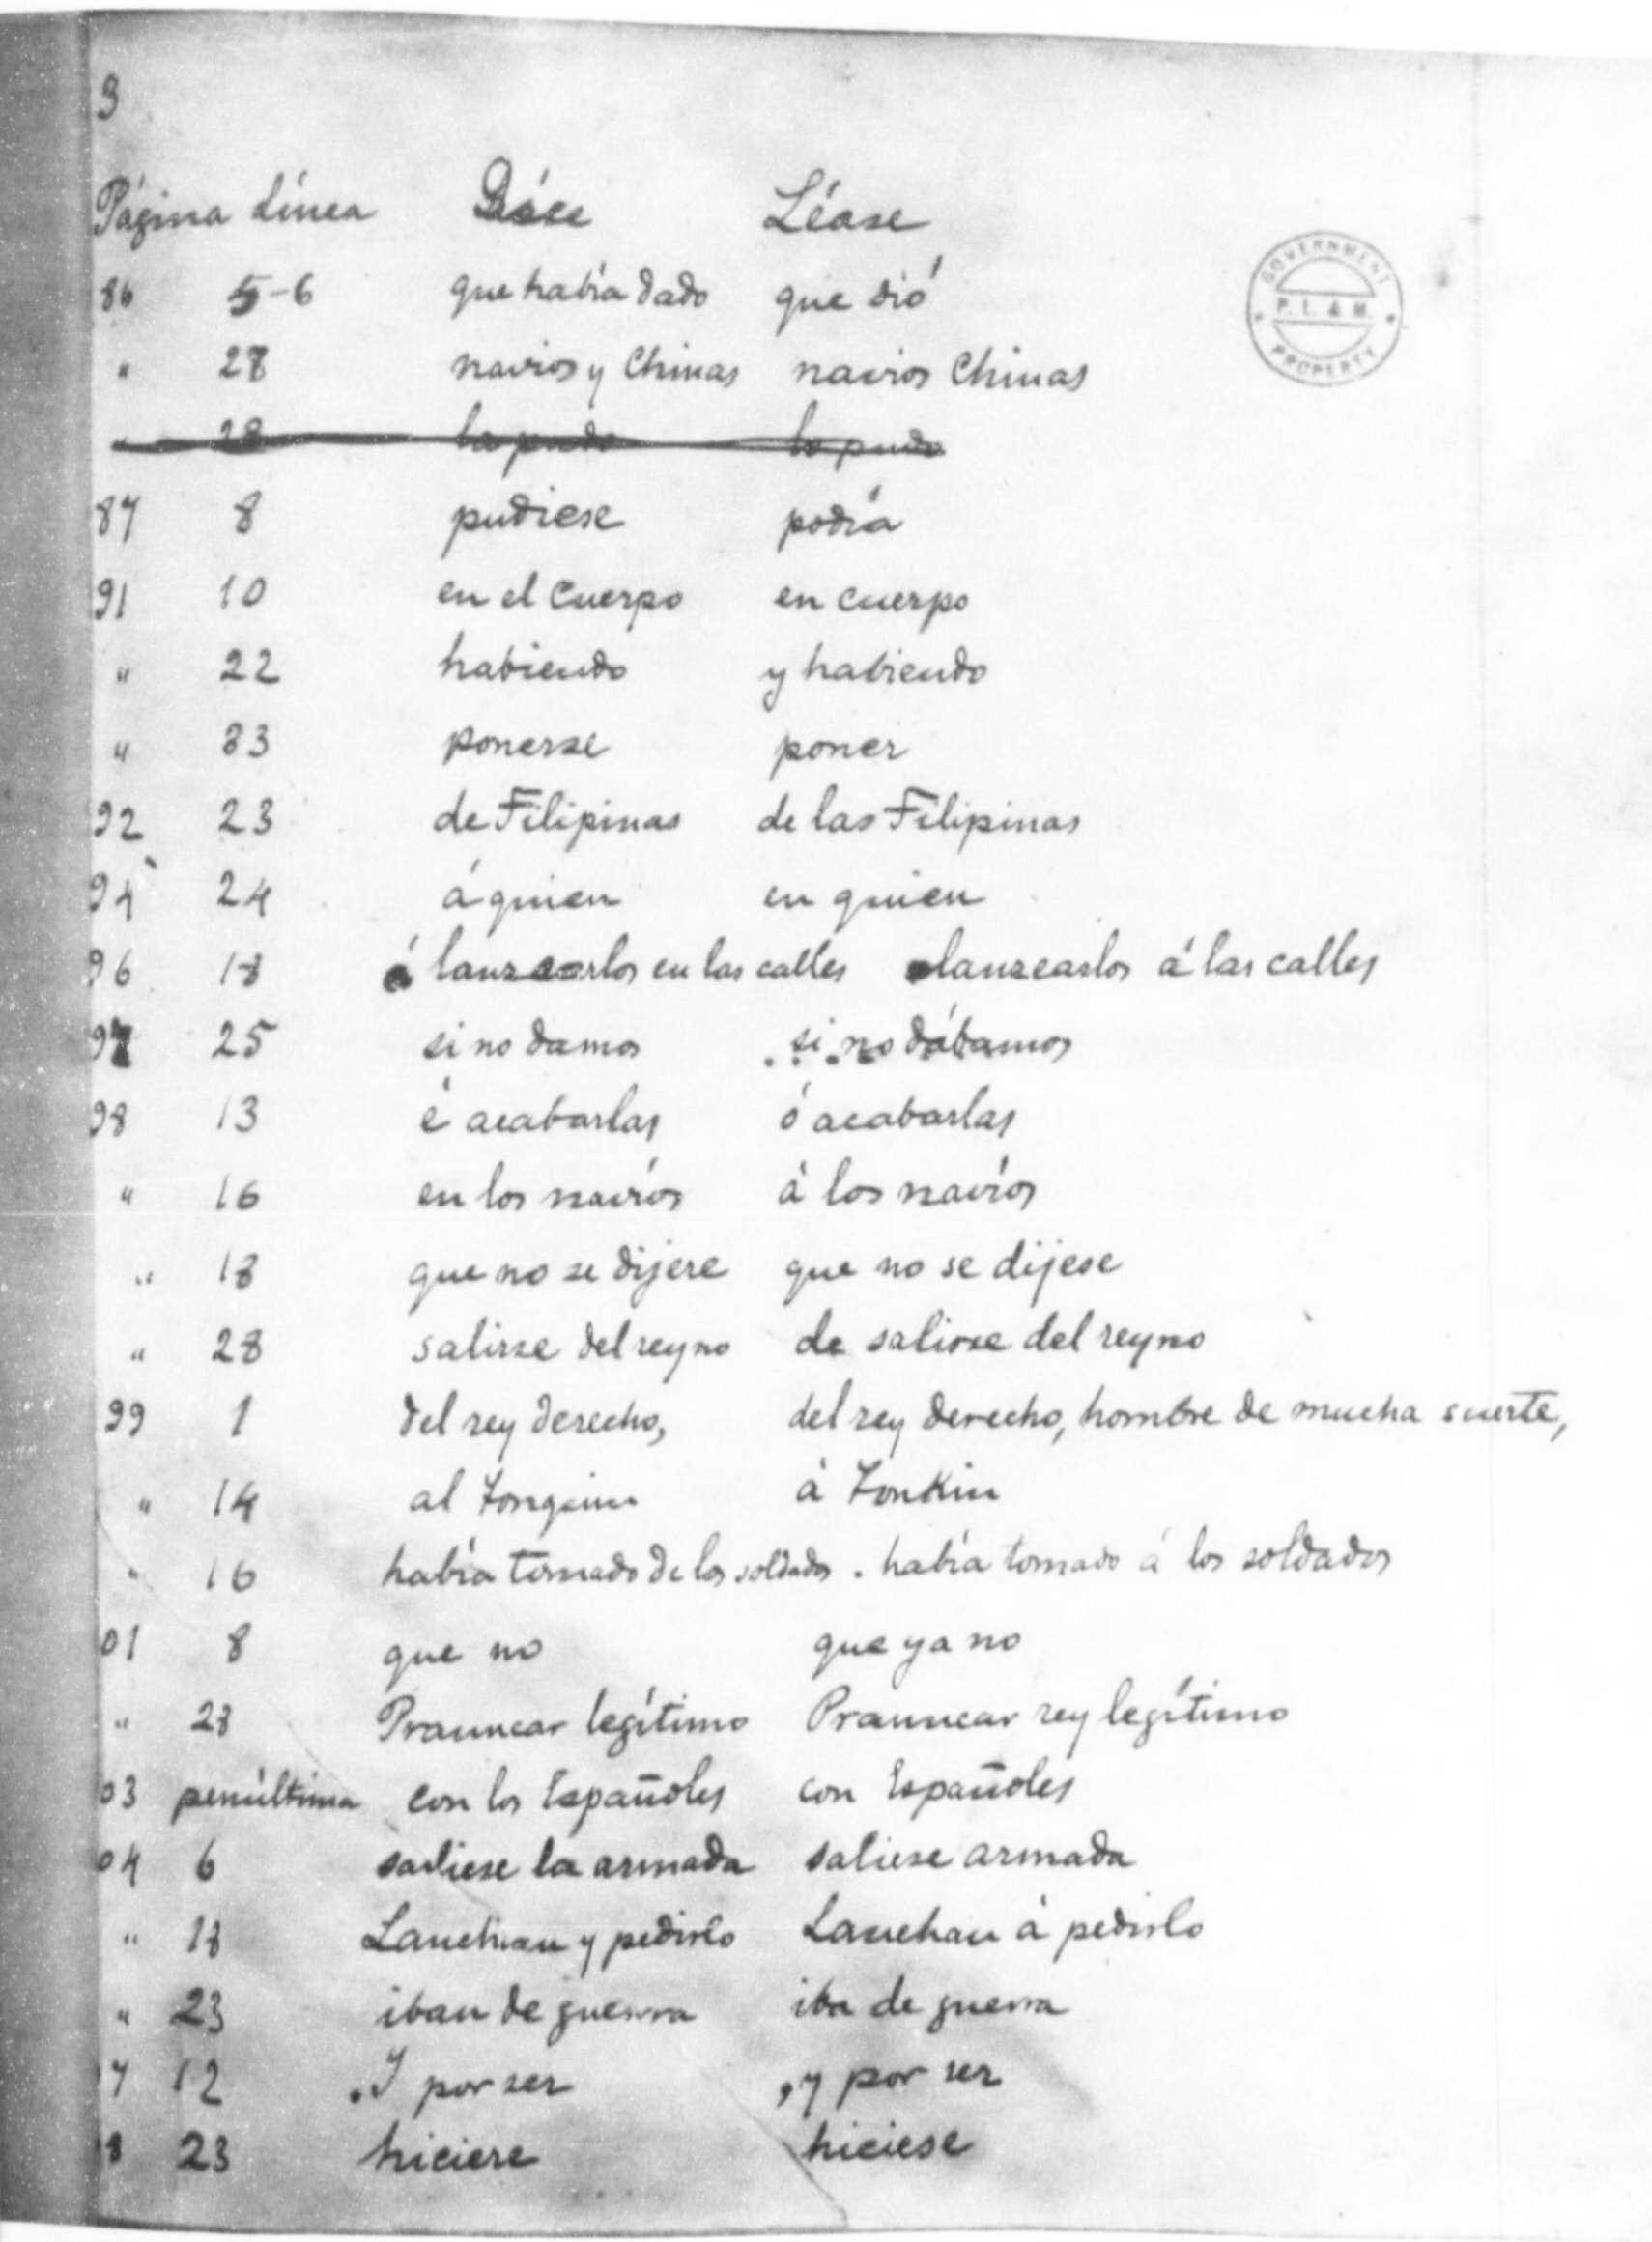 3
Página Línea Dice Léase
86 5-6 que había dado que dió
" 28 navios y Chinas navios Chinas
" 28 la pudo lo pudo
87 8 pudiese podía
91 10 en el cuerpo en cuerpo
" 22 habiendo y habiendo
" 33 ponerse poner
92 23 de Filipinas de las Filipinas
94 24 á quien en quien
96 18 á lanzearlos en las calles lanzearlos á las calles
97 25 si no damos si no dábamos
98 13 é acabarlas ó acabarlas
" 16 en los navíos á los navíos
" 18 que no se dijere que no se dijese
" 28 salirse del reyno de salirse del reyno
99 1 del rey derecho, del rey derecho, hombre de mucha suerte,
" 14 al Tonquin á Tonkin
" 16 había tomado de los soldados . había tomado á los soldados
01 8 que no que ya no
" 28 Prauncar legítimo Prauncar rey legítimo
03 penúltima con los Españoles con Españoles
04 6 saliese la armada saliese armada
" 18 Lanchan y pedirlo Lanchan á pedirlo
" 23 iban de guerra iba de guerra
7 12 .Y por ser , y por ser
8 23 hiciere hiciese
GOVERNMENT
P. L. & M.
PROPERTY